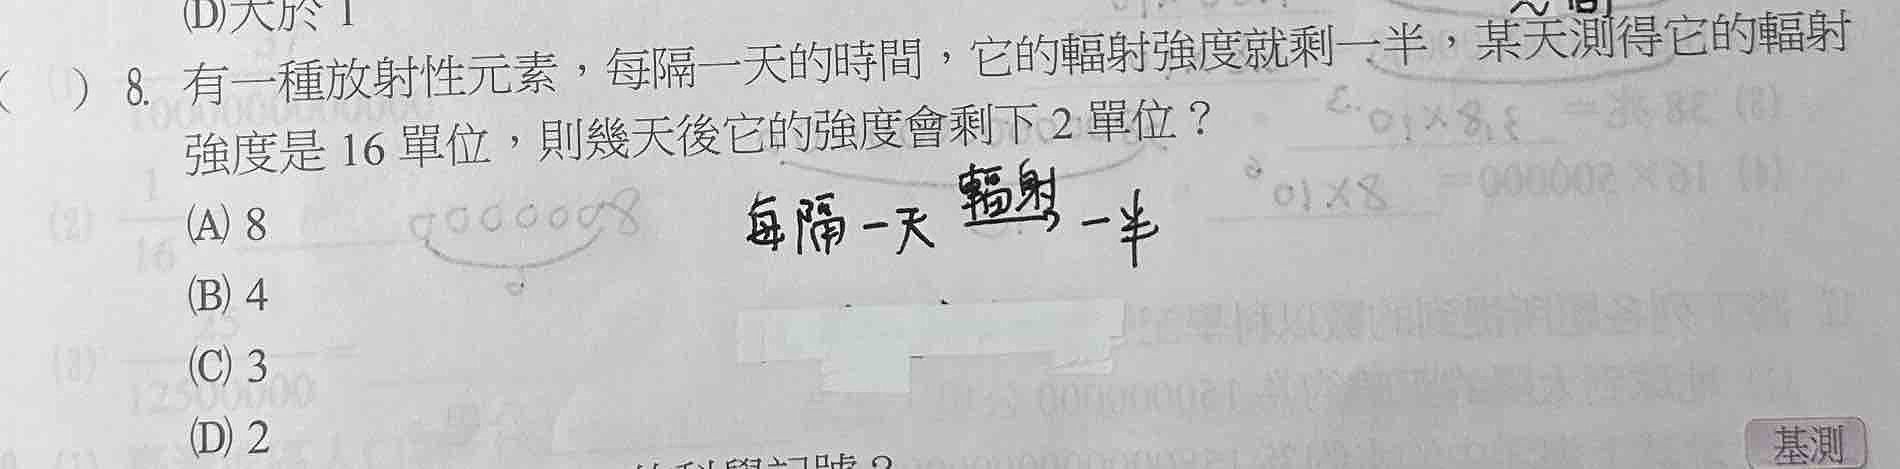 (D)大於 1
( ) 8. 有一種放射性元素，每隔一天的時間，它的輻射強度就剩一半，某天測得它的輻射
強度是 16 單位，則幾天後它的強度會剩下 2 單位？
(A) 8
每隔一天 輻射 一半
(B) 4
(C) 3
(D) 2
基測